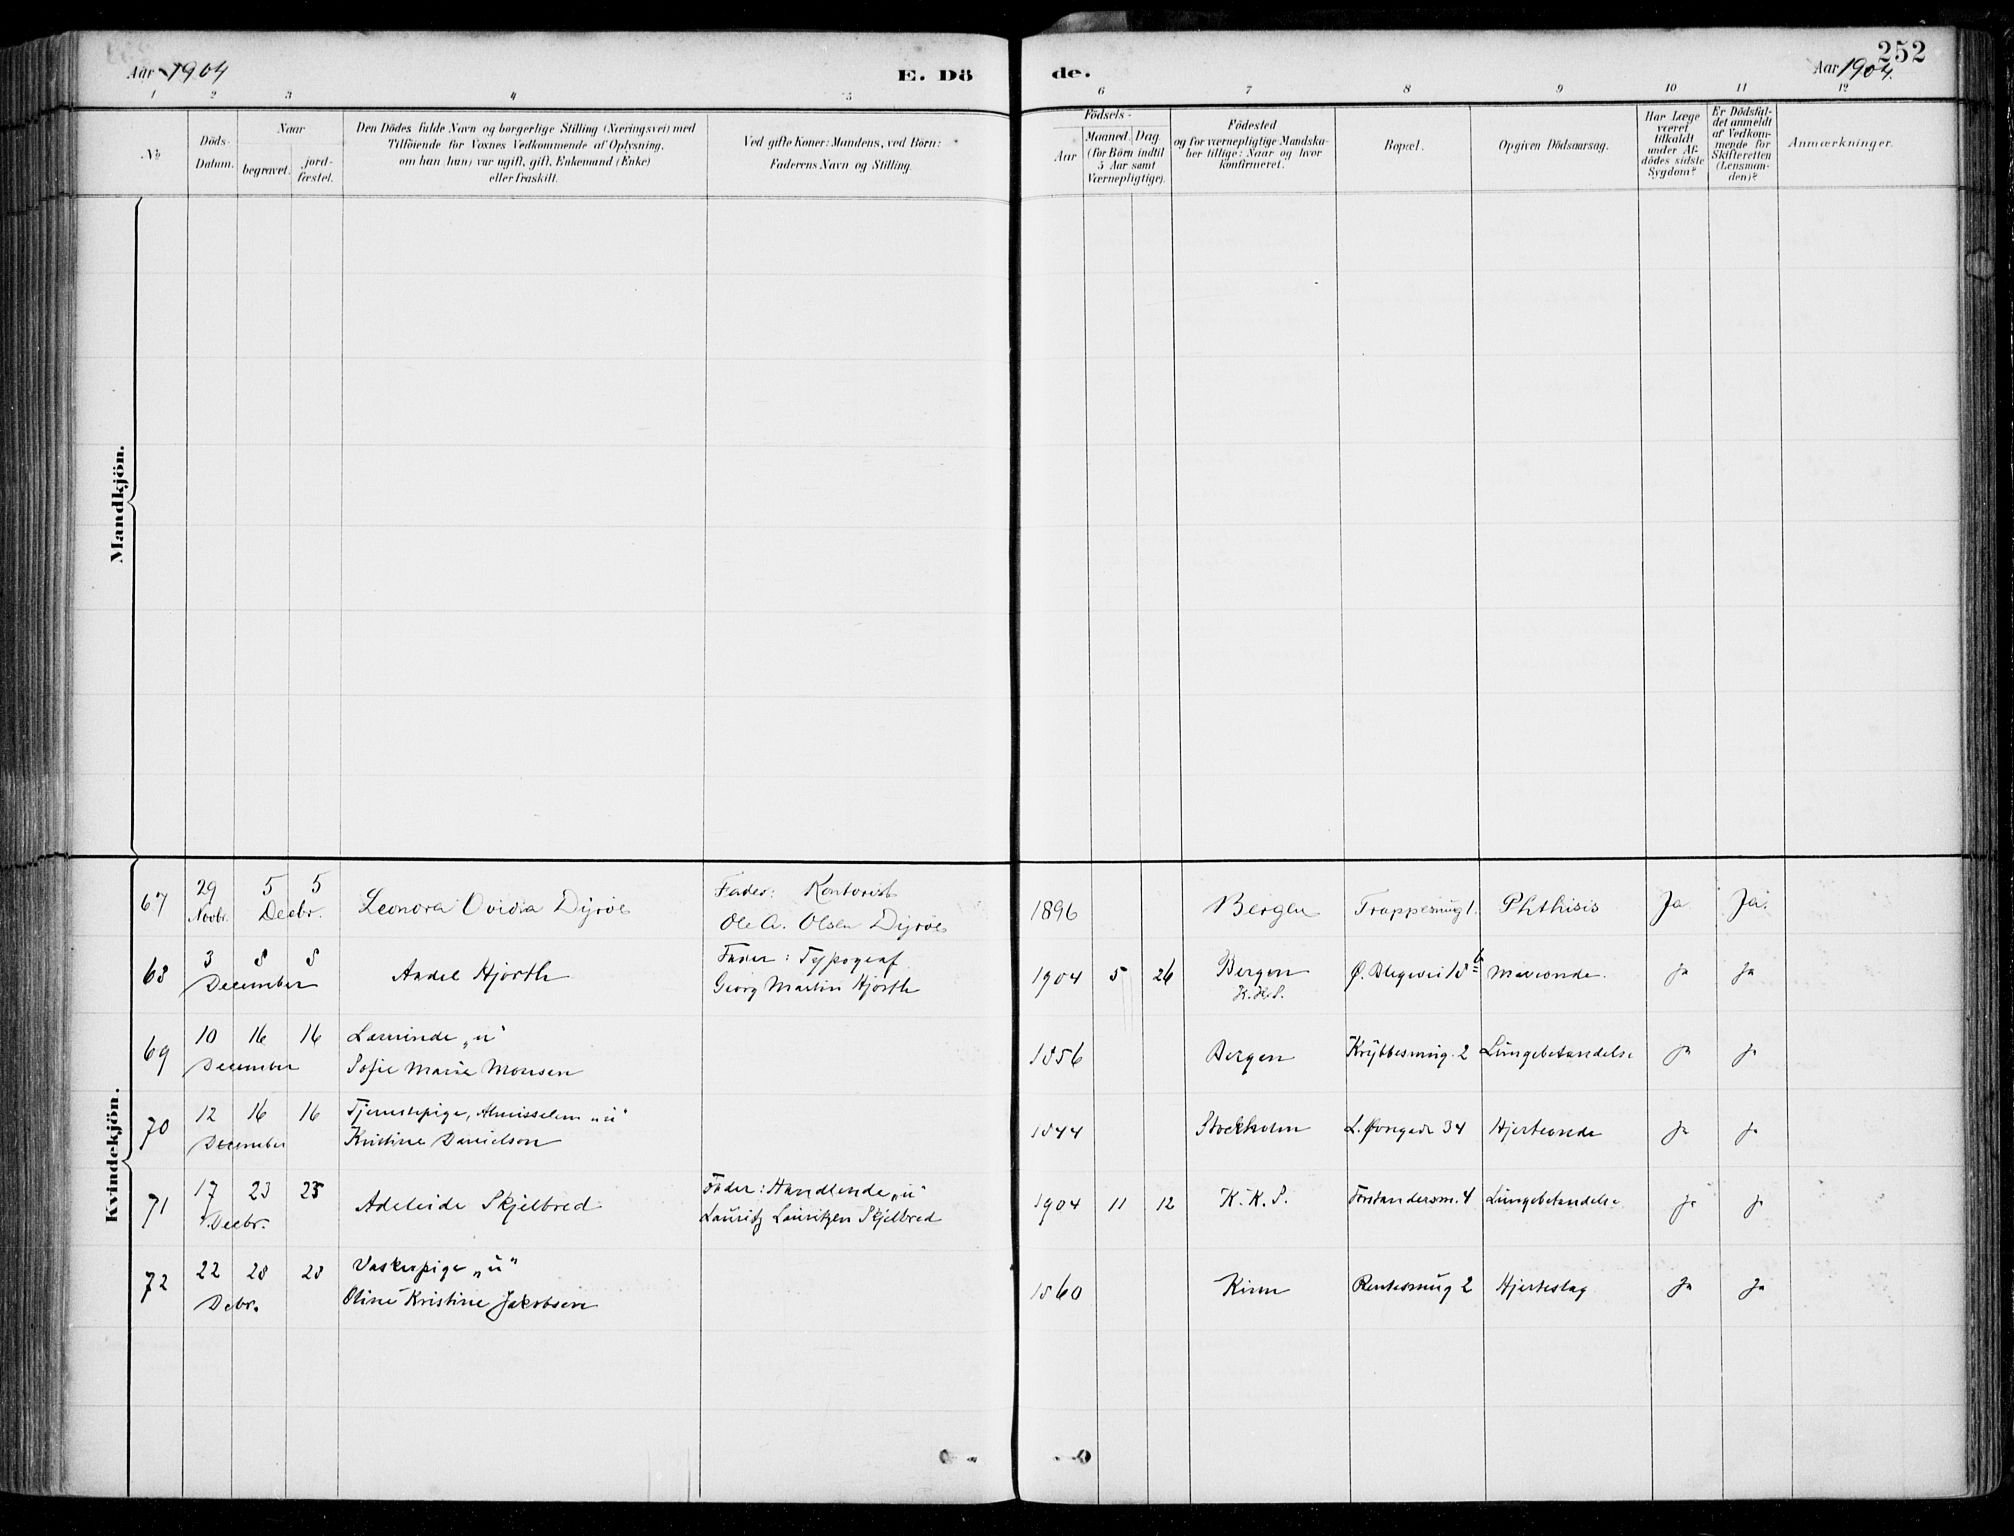 252
Aar 1904 E. Dö de. Aar 1904.
1 2 3 4 5 6 7 8 9 10 11 12
No
Döds-Datum.
Naar begravet. jord-fæstet.
Den Dödes fulde Navn og borgerlige Stilling (Næringsvei) med
Tilföiende for Voxnes Vedkommende af Oplysning,
om han (hun) var ugift, gift, Enkemand (Enke)
eller fraskilt.
Ved gifte Koner: Mandens, ved Börn:
Faderens Navn og Stilling.
Födsels-
Aar Maaned. Dag
(for Börn indtil
5 Aar samt
Værnepligtige).
Födested
og for værnepligtige Mandska-
ber tillige: Naar og hvor
konfirmeret.
Bopæl.
Opgiven Dödsaarsag.
Har Læge
været
tilkaldt
under Af-
dödes sidste
Sygdom?
Er Dödsfal-
det anmeldt
af Vedkom-
mende for
Skifteretten
(Lensman-
den)?
Anmærkninger.
Mandkjön.
Kvindekjön.
67 29 Novbr. 5 5 Decbr. Leonora Ovidia Dyröe Fader: Kontorist
Ole A. Olsen Dyröe 1896 Bergen Trappesmug 1. Phthisis Ja Ja.
68 3 8 8 December Andel Hjorth Fader: Typograf
Georg Martin Hjorth 1904 5 26 Bergen
K.K.S. Ø. Blegevei 18 b Maveonde. Ja Ja
69 10 16 16 December Læminde „u"
Sofie Marie Monsen 1856 Bergen Krybbesmug. 2 Lungebetændelse Ja Ja
70 12 16 16 December Tjenestepige, Almisselem „u"
Kristine Danielson 1844 Stockholm L. Øvregade 34 Hjerteonde Ja Ja
71 17 23 23 Decbr. Adeleide Skjelbred Fader: Handlende „u"
Lauritz Lauritzen Skjelbred 1904 11 12 K.K.S. Forstandersm. 4 Lungebetændelse Ja Ja
72 22 28 28 Debr. Vaskerpige „u"
Oline Kristine Jakobsen 1860 Kinn Rentesmug 2 Hjerteslag Ja Ja